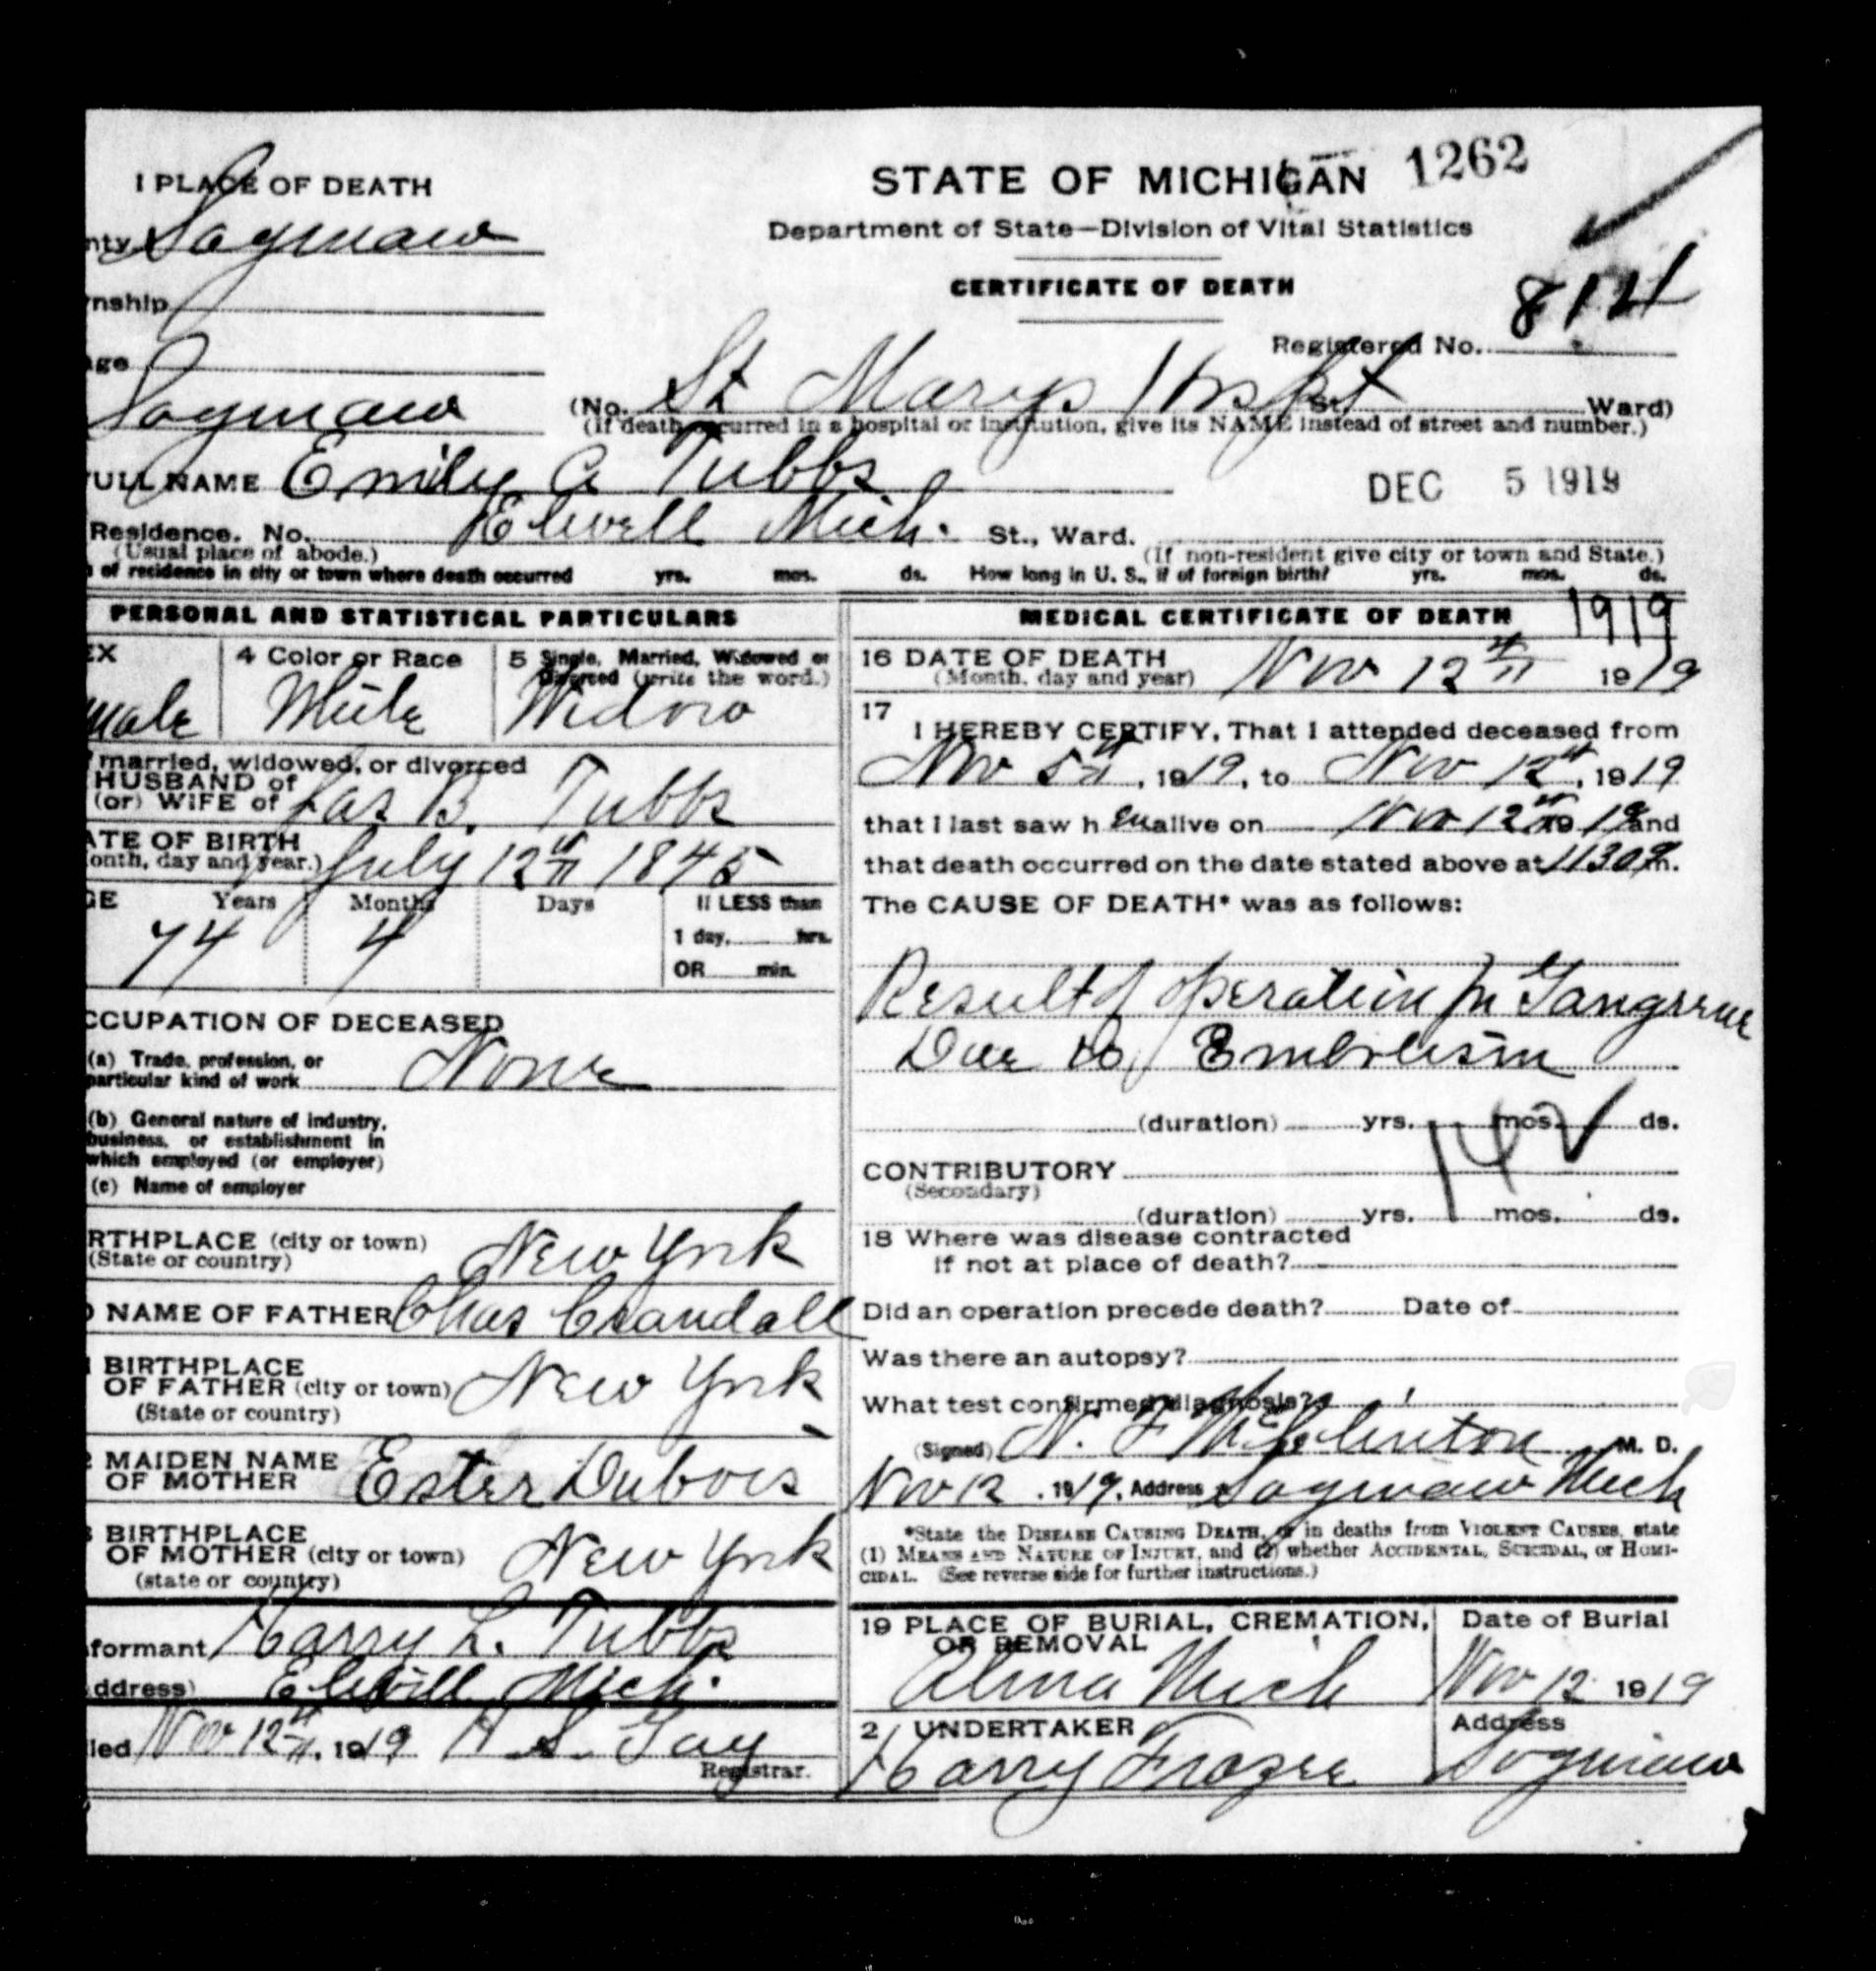 1 PLACE OF DEATH
STATE OF MICHIGAN 1262
nty Saginaw
Department of State—Division of Vital Statistics
nship
CERTIFICATE OF DEATH
Registered No.
age
Saginaw (No. St Marys Hospt St. Ward)
(If death occurred in a hospital or institution, give its NAME instead of street and number.)
FULL NAME Emily A Tubbs
DEC 5 1919
Residence. No. Elwell Mich. St., Ward.
(Usual place of abode.) (If non-resident give city or town and State.)
of residence in city or town where death occurred yrs. mos. ds. How long in U. S., if of foreign birth? yrs. mos. ds.
PERSONAL AND STATISTICAL PARTICULARS
EX 4 Color or Race 5 Single, Married, Widowed or Divorced (write the word.)
male White Widow
married, widowed, or divorced
HUSBAND of
(or) WIFE of Jas B. Tubbs
ATE OF BIRTH
onth, day and year.) July 12th 1845
GE Years Months Days If LESS than
74 4 1 day, hrs.
OR min.
CCUPATION OF DECEASED
(a) Trade, profession, or
particular kind of work None
(b) General nature of industry,
business, or establishment in
which employed (or employer)
(c) Name of employer
RTHPLACE (city or town) New York
(State or country)
NAME OF FATHER Chas Crandall
BIRTHPLACE
OF FATHER (city or town) New York
(State or country)
MAIDEN NAME
OF MOTHER Ester Dubois
BIRTHPLACE
OF MOTHER (city or town) New York
(state or country)
formant Harry L. Tubbs
ddress) Elwell Mich.
led Nov 12th, 1919 H. S. Gay
Registrar.
MEDICAL CERTIFICATE OF DEATH 1919
16 DATE OF DEATH
(Month, day and year) Nov 12th 1919
17
I HEREBY CERTIFY, That I attended deceased from
Nov 5th, 1919, to Nov 12th, 1919
that I last saw h er alive on Nov 12th 1919 and
that death occurred on the date stated above at 1130 m.
The CAUSE OF DEATH* was as follows:
Result of operation for Gangrene
Due to Embolism
(duration) yrs. mos. ds.
142
CONTRIBUTORY
(Secondary)
(duration) yrs. mos. ds.
18 Where was disease contracted
if not at place of death?
Did an operation precede death? Date of
Was there an autopsy?
What test confirmed diagnosis?
(Signed) N. F. McClinton M. D.
Nov 12, 1919, Address Saginaw Mich
*State the DISEASE CAUSING DEATH, or in deaths from VIOLENT CAUSES, state
(1) MEANS AND NATURE OF INJURY, and (2) whether ACCIDENTAL, SUICIDAL, or HOMI-
CIDAL. (See reverse side for further instructions.)
19 PLACE OF BURIAL, CREMATION, OR REMOVAL Date of Burial
Alma Mich Nov 12 1919
2 UNDERTAKER Address
Harry Frazee Saginaw